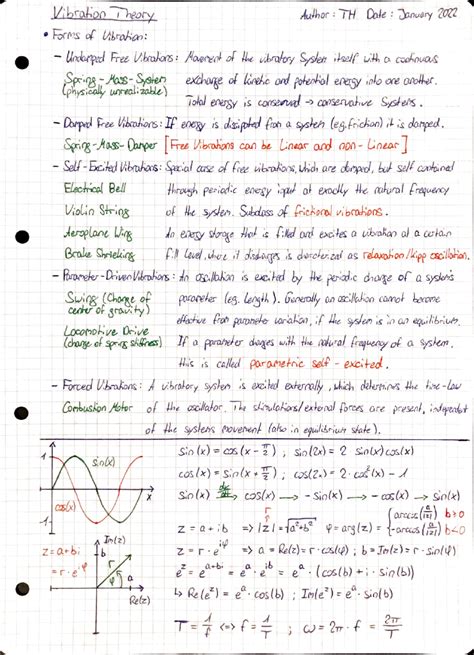 Vibration Theory Author: TH Date: January 2022
• Forms of Vibration:
- Undamped Free Vibrations: Movement of the vibratory System itself with a continuous
Spring-Mass-System exchange of kinetic and potential energy into one another.
(physically unrealizable) Total energy is conserved → conservative Systems.
- Damped Free Vibrations: If energy is dissipated from a system (eg. friction) it is damped.
Spring-Mass-Damper [Free Vibrations can be Linear and non-Linear]
- Self-Excited Vibrations: Special case of free vibrations, which are damped, but self contained
Electrical Bell through periodic energy input at exactly the natural frequency
Violin String of the system. Subclass of frictional vibrations.
Aeroplane Wing An energy storage that is filled and excites a vibration at a certain
Brake Shrieking fill level, where it discharges is characterized as relaxation/kipp oscillation.
- Parameter-Driven Vibrations: An oscillation is excited by the periodic change of a system's
Swing (Change of parameter (eg. length). Generally an oscillation cannot become
center of gravity) effective from parameter variation, if the system is in an equilibrium.
Locomotive Drive If a parameter changes with the natural frequency of a system,
(change of spring stiffness) this is called parametric self-excited.
- Forced Vibrations: A vibratory system is excited externally, which determines the time-law
Combustion Motor of the oscillator. The stimulations/external forces are present, independent
of the systems movement (also in equilibrium state).
1 sin(x) cos(x) x -1
sin(x) = cos(x - π/2) ; sin(2x) = 2 sin(x) cos(x)
cos(x) = sin(x + π/2) ; cos(2x) = 2 cos²(x) - 1
sin(x) d/dx→ cos(x) → -sin(x) → -cos(x) → sin(x)
z = a + ib ⇒ |z| = √a²+b² r φ = arg(z) = { arccos(a/|z|) b≥0 -arccos(a/|z|) b<0
z = a+bi
= r·e^iφ
Im(z) b r φ a Re(z)
z = r·e^iφ ⇒ a = Re(z) = r·cos(φ) ; b = Im(z) = r·sin(φ)
e^z = e^a+ib = e^a·e^ib = e^a·(cos(b) + i·sin(b))
↳ Re(e^z) = e^a·cos(b) ; Im(e^z) = e^a·sin(b)
T = 1/f ⇔ f = 1/T ; ω = 2π·f = 2π/T